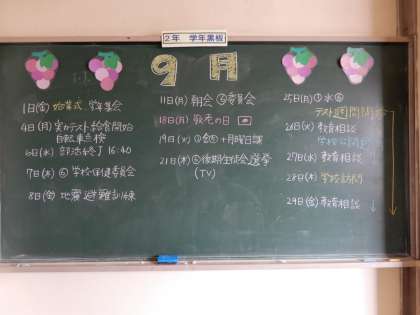 2年 学年黒板
9月
1日(金) 始業式、学年集会
4日(月) 実力テスト 給食開始
自転車点検
6日(水) 部活終了 16:40
7日(木) ⑥ 学校保健委員会
8日(金) 地震避難訓練
11日(月) 朝会 ⑥委員会
18日(月) 敬老の日
19日(火)
+月曜日課
21日(木) ⑥後期生徒会選挙
(TV)
25日(月) ① 水⑥
テスト週間開始
26日(火) 教育相談
学校公開
27日(水) 教育相談
28日(木) 学校訪問
29日(金) 教育相談